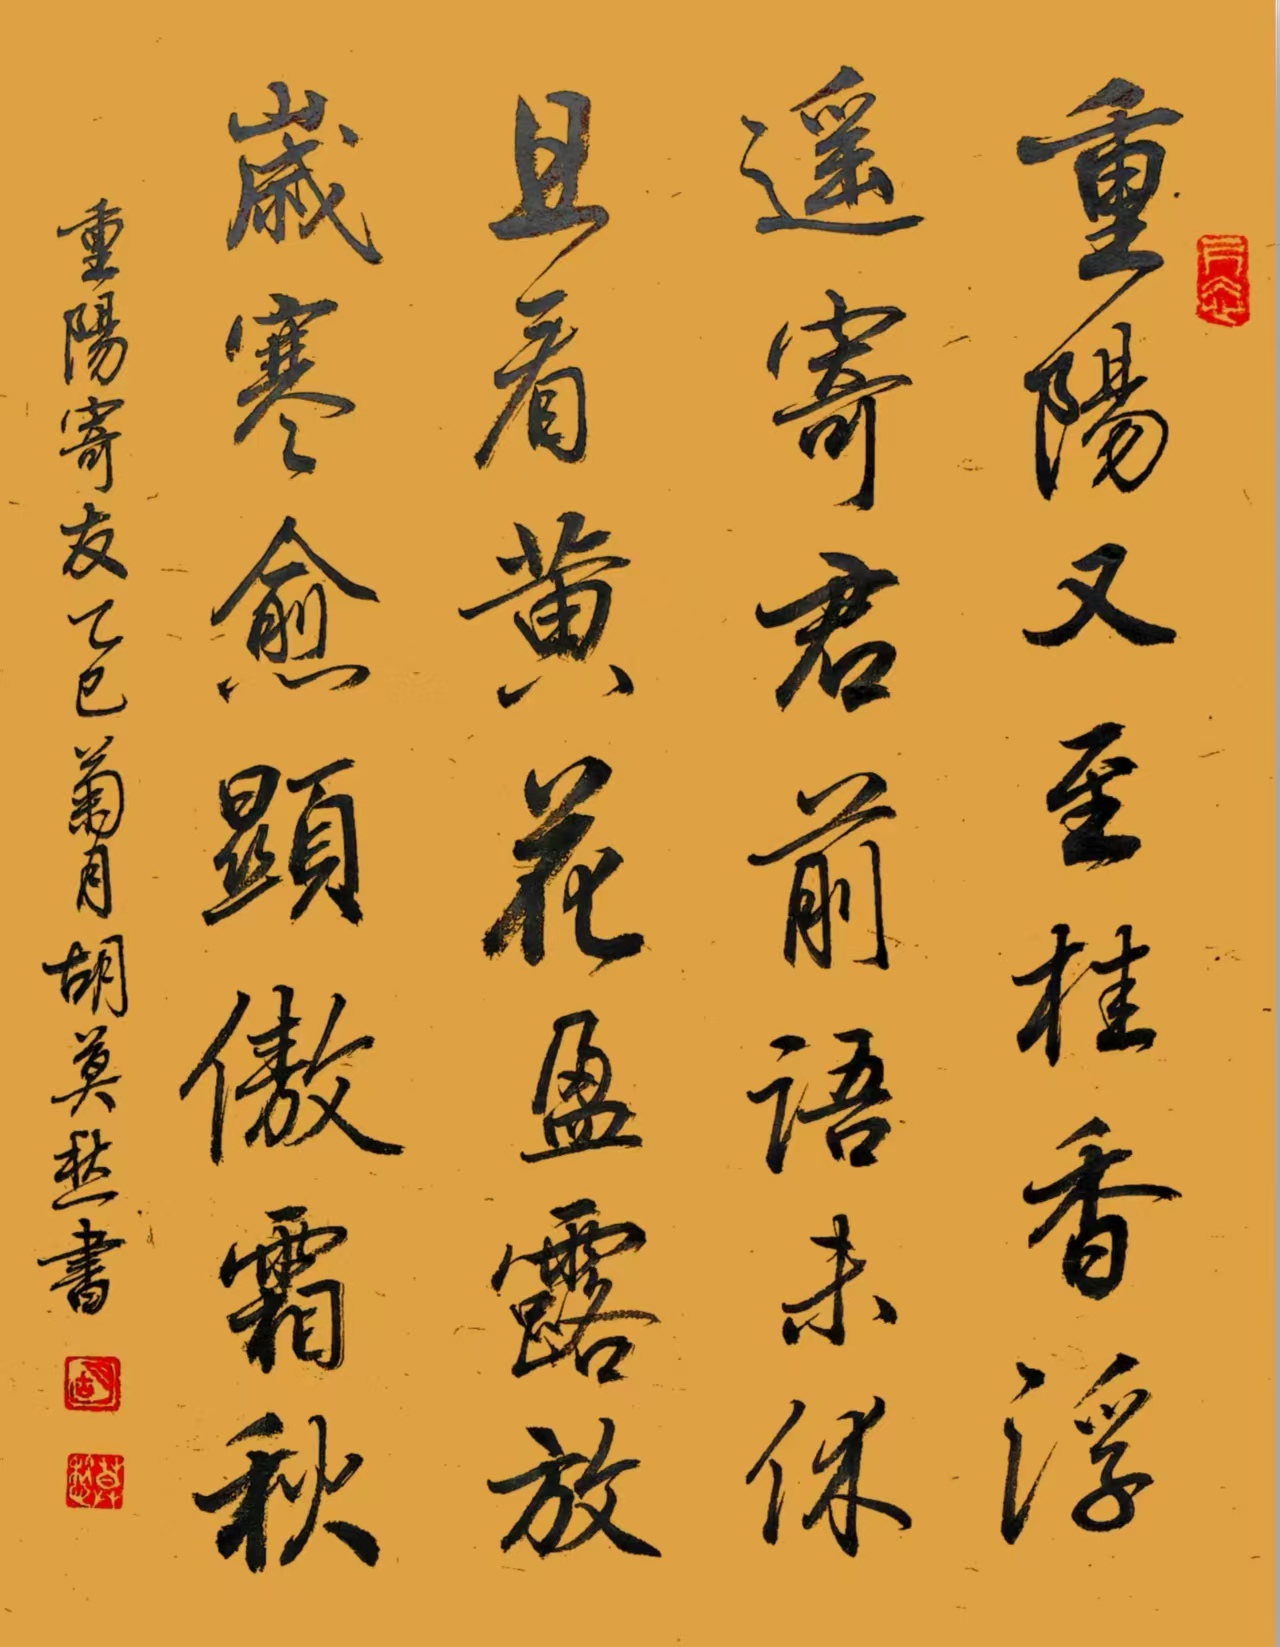 重陽又至桂香浮
遥寄君前語未休
且看黄花盈露放
歲寒愈顯傲霜秋
重陽寄友乙巳菊月胡莫愁書